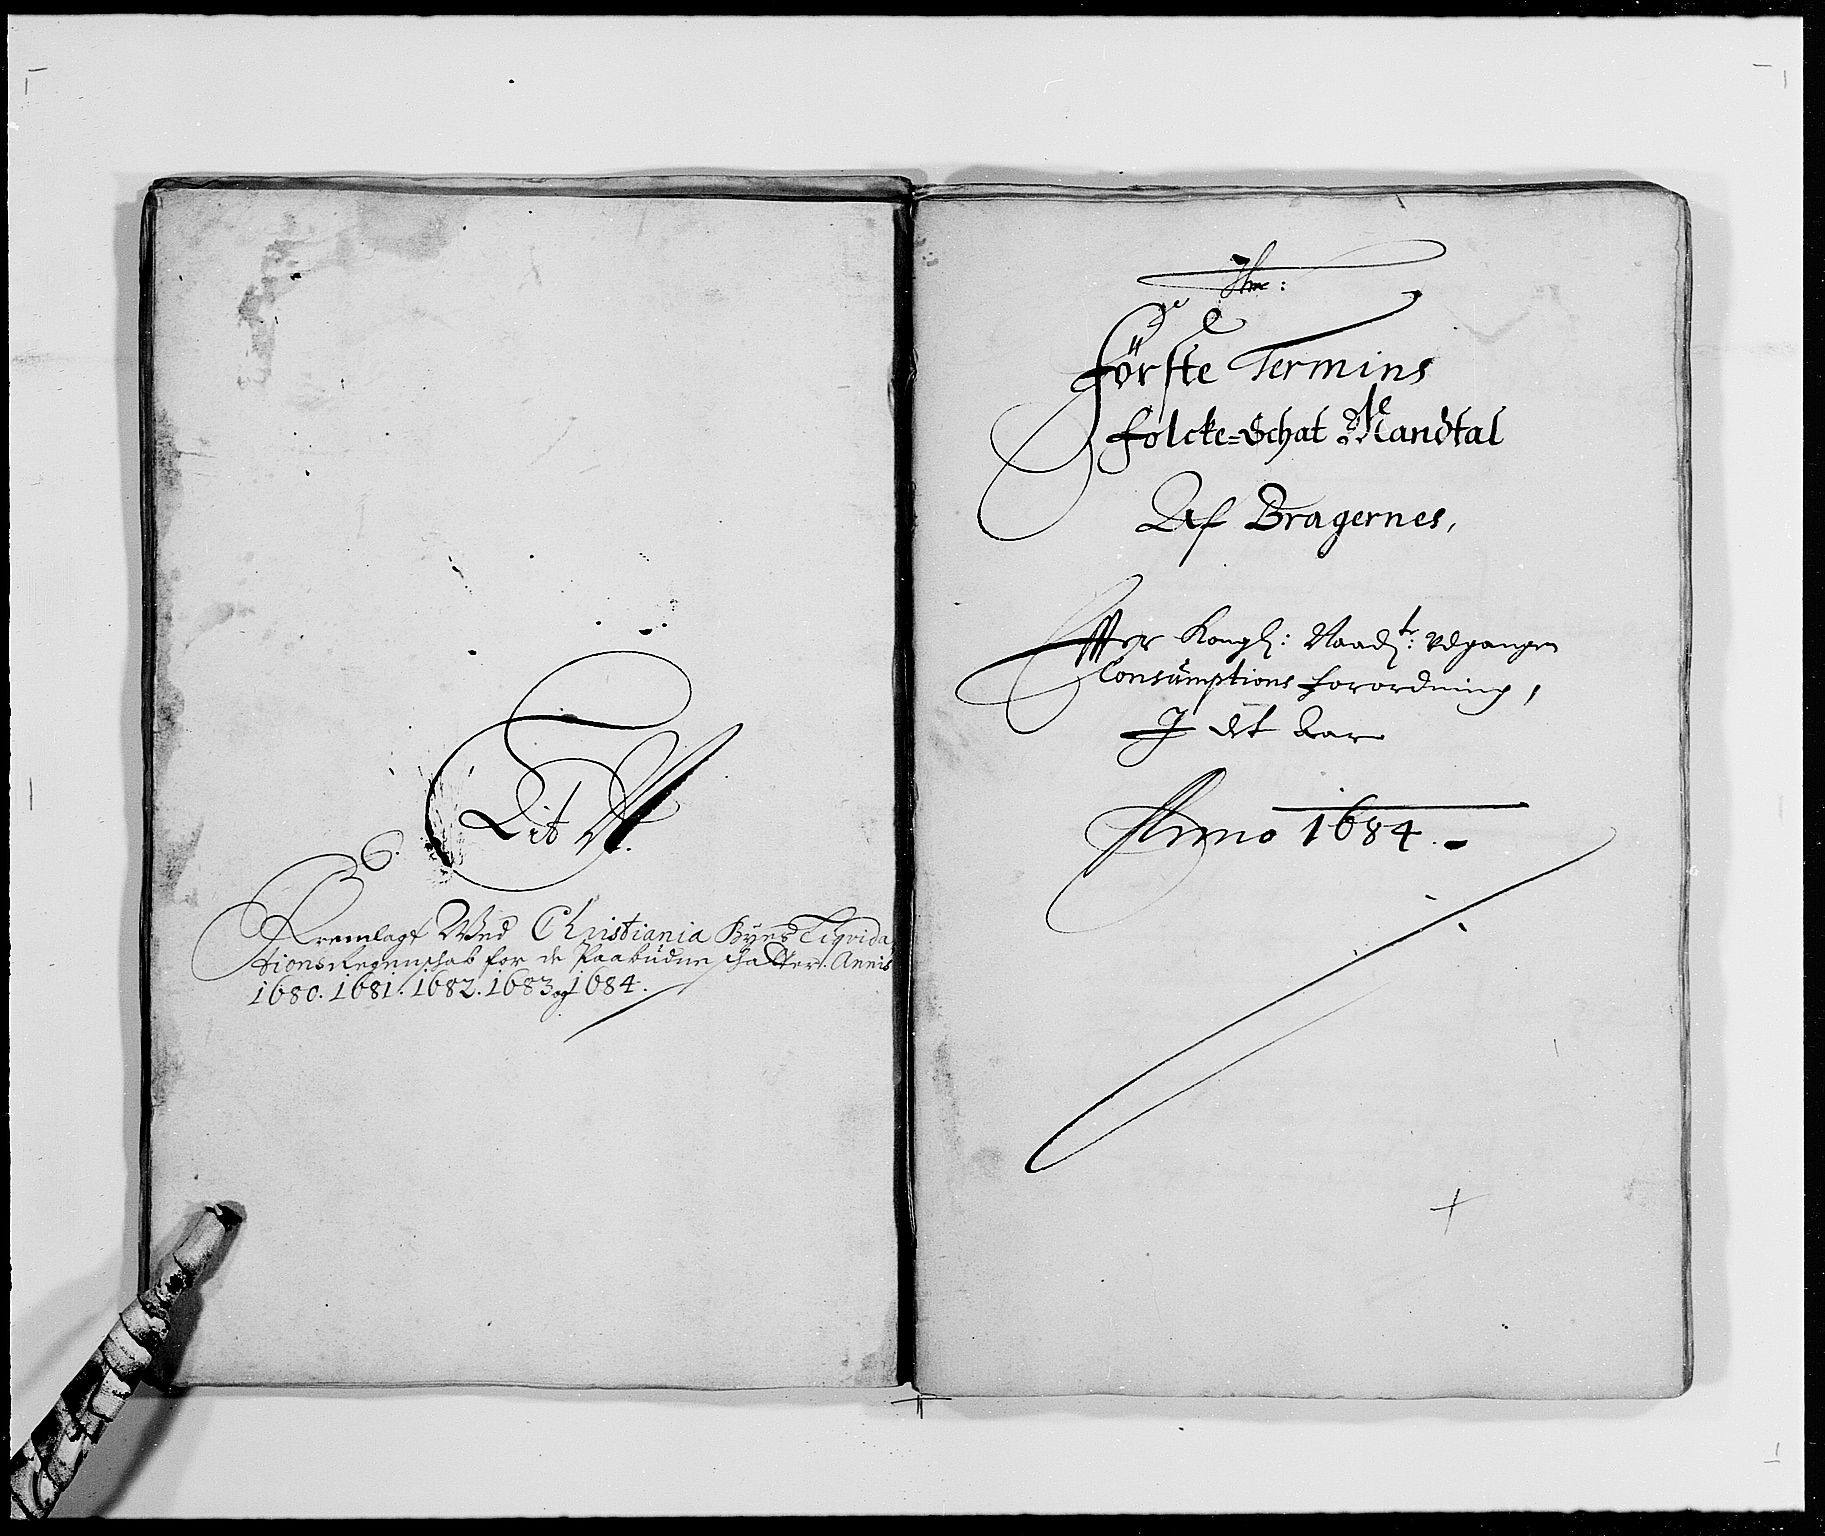 Lit A.
6.
Fremlagt Wed Christiania Byes Liqvida
tions Regenschab for de Paabudne schatter. Annis
1680. 1681. 1682. 1683 og 1684.
Förste Termins
Folcke=Schat Mandtal
Af Bragernes,
Effter Kongl: Naadst: Udgangne
Consumptions forordning,
J det Aar
Anno 1684.